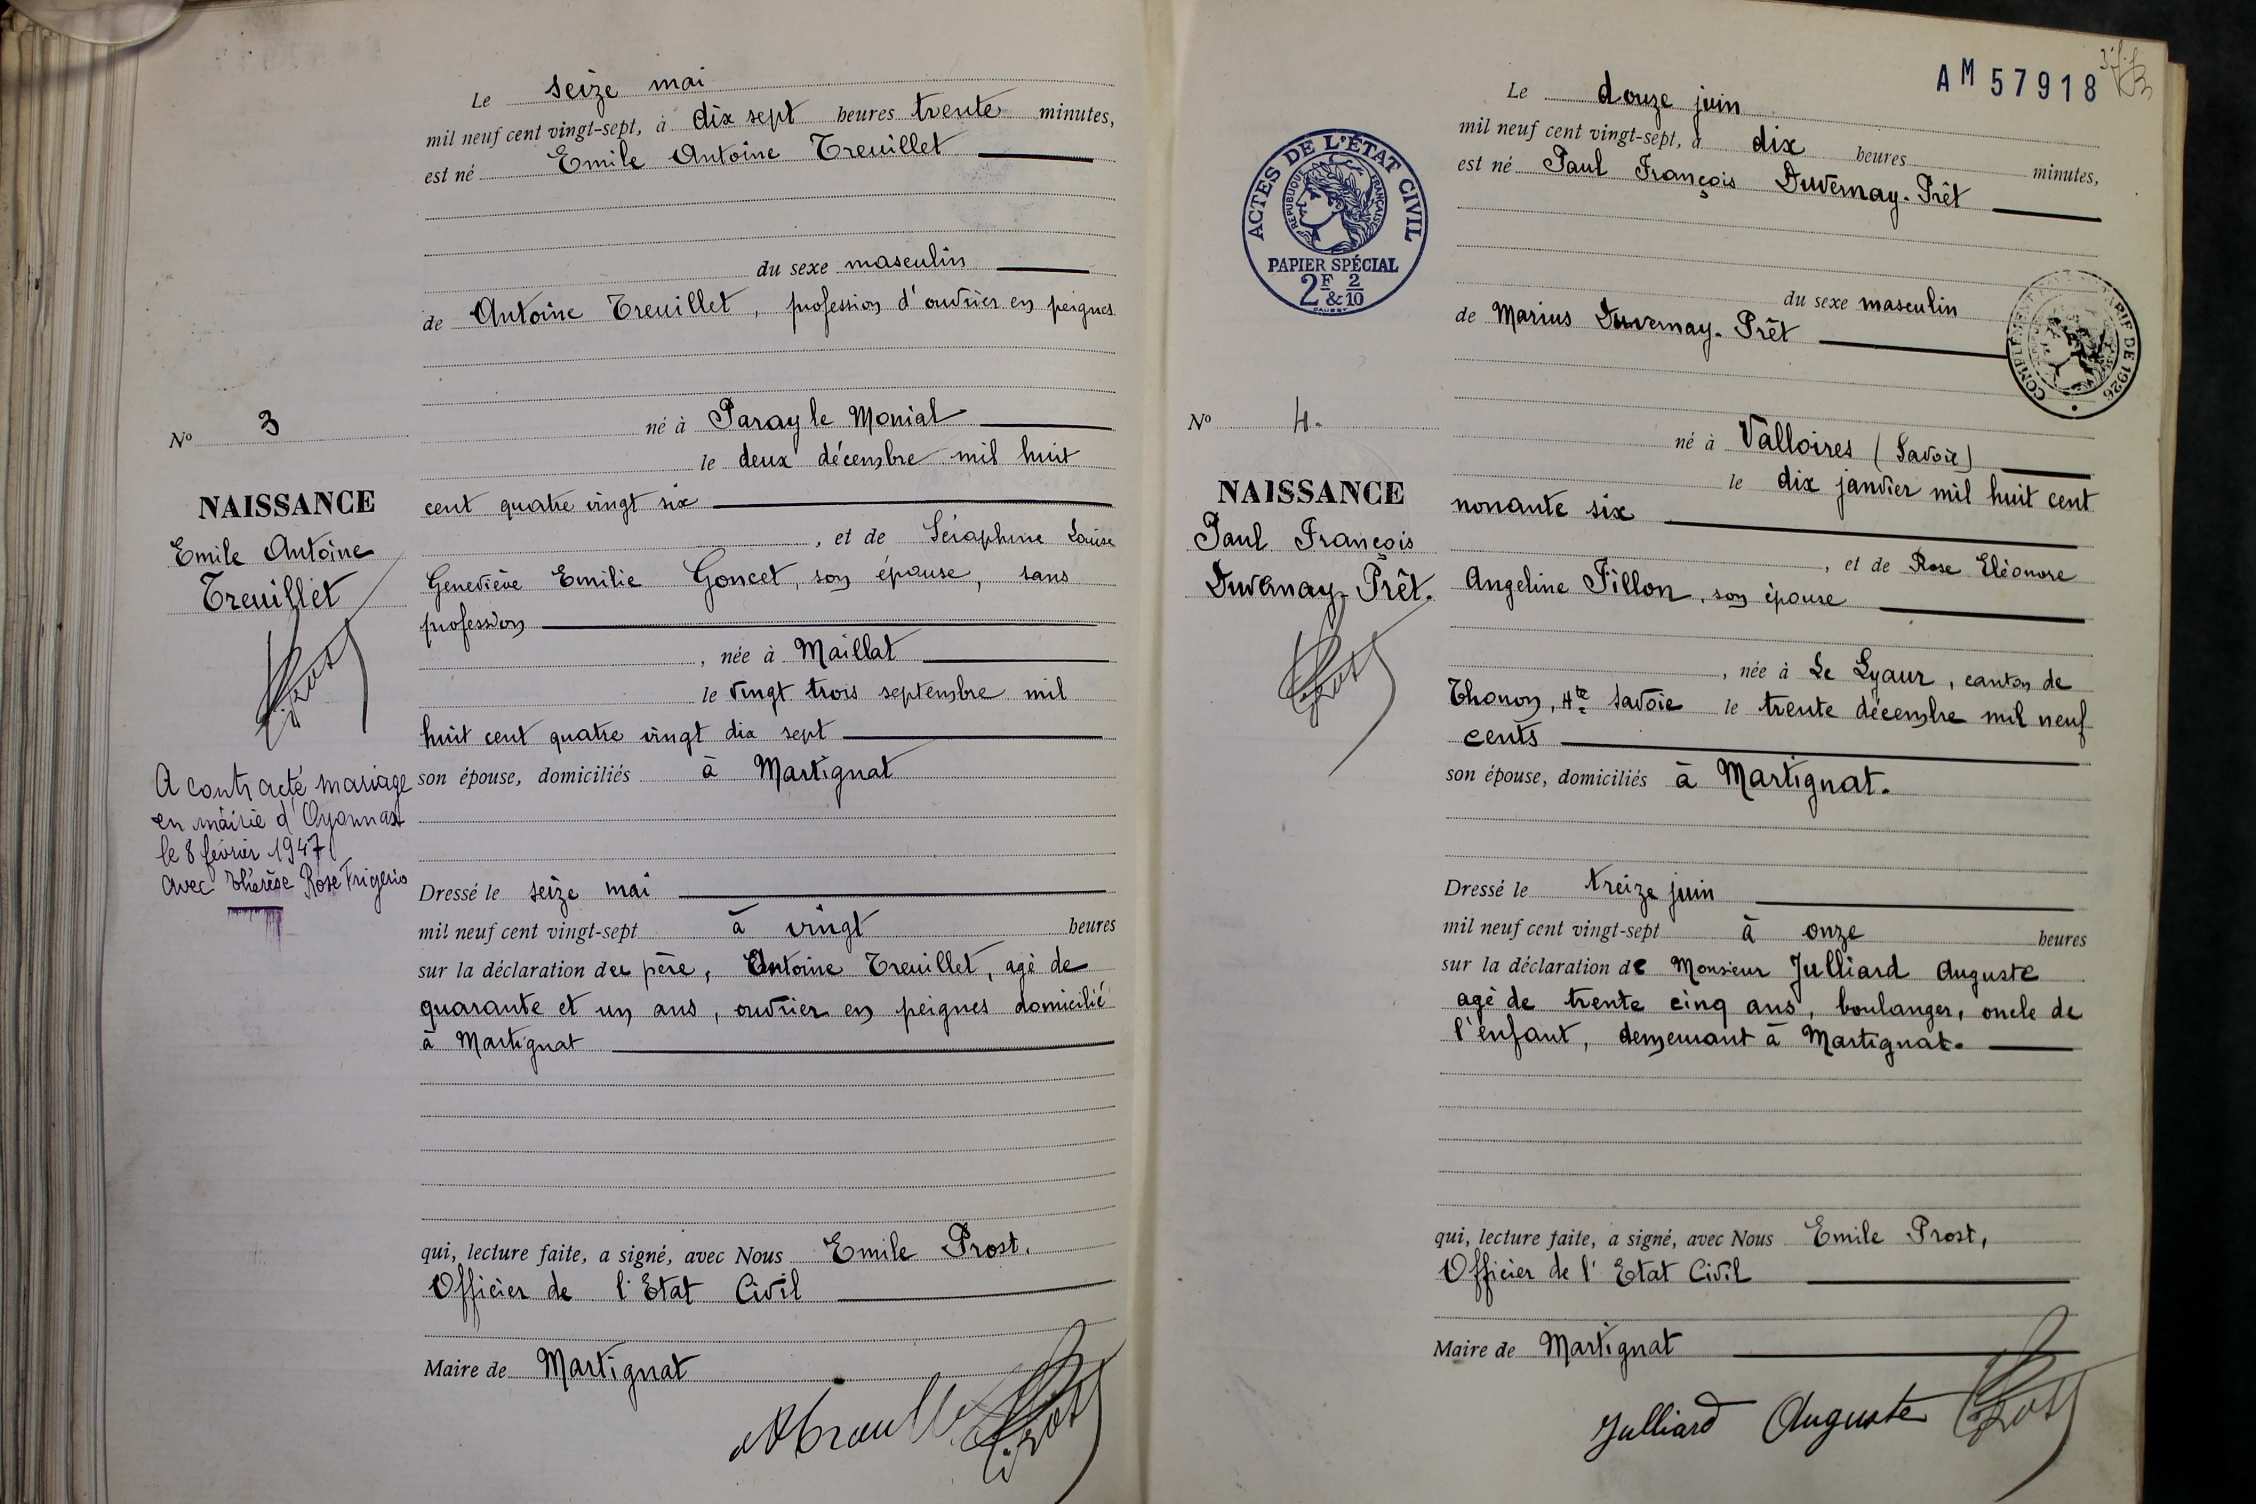 Le seize mai
mil neuf cent vingt-sept, à dix sept heures trente minutes,
est né Emile Antoine Treuillet
du sexe masculin
de Antoine Treuillet, profession d'ouvrier en peignes
né à Paray le Monial
le deux décembre mil huit
cent quatre vingt six
, et de Séraphine Louise
Geneviève Emilie Goncet, son épouse, sans
profession
, née à Maillat
le vingt trois septembre mil
huit cent quatre vingt dix sept
son épouse, domiciliés à Martignat
Dressé le seize mai
mil neuf cent vingt-sept à vingt heures
sur la déclaration du père, Antoine Treuillet, agé de
quarante et un ans, ouvrier en peignes domicilié
à Martignat
qui, lecture faite, a signé, avec Nous Emile Prost.
Officier de l'Etat Civil
Maire de Martignat
Prost
No 3
NAISSANCE
Emile Antoine
Treuillet
Prost
A contracté mariage
en mairie d'Oyonnax
le 8 février 1947
avec Thérèse Rose Frigerio
AM 57918
Le douze juin
mil neuf cent vingt-sept, à dix heures minutes,
est né Paul François Duvernay-Prêt
du sexe masculin
de Marius Duvernay-Prêt
né à Valloires (Savoie)
le dix janvier mil huit cent
nonante six
, et de Rose Eléonore
Angeline Fillon, son épouse
, née à Le Lyaur, canton de
Thonon, Hte Savoie le trente décembre mil neuf
cents
son épouse, domiciliés à Martignat.
Dressé le treize juin
mil neuf cent vingt-sept à onze heures
sur la déclaration de Monsieur Julliard Auguste
agé de trente cinq ans, boulanger, oncle de
l'enfant, demeurant à Martignat.
qui, lecture faite, a signé, avec Nous Emile Prost,
Officier de l'Etat Civil
Maire de Martignat
Julliard Auguste Prost
ACTES DE L'ÉTAT CIVIL
RÉPUBLIQUE FRANÇAISE
PAPIER SPÉCIAL
2F & 2/10
No 4.
NAISSANCE
Paul François
Duvernay-Prêt.
Prost